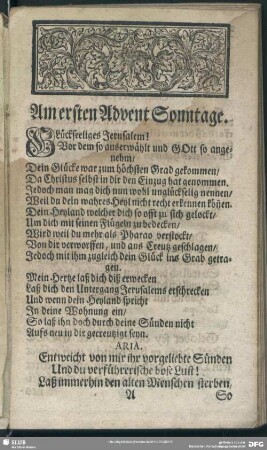 Am ersten Advent Sonntage.
Glückseeliges Jerusalem!
Vor dem so auserwählt und GOtt so ange-
nehm/
Dein Glücke war zum höchsten Grad gekommen/
Da Christus selbst in dir den Einzug hat genommen,
Jedoch man mag dich nun wohl unglückselig nennen/
Weil du dein wahres Heyl nicht recht erkennen können.
Dein Heyland welcher dich so offt zu sich gelockt/
Um dich mit seinen Flügeln zu bedecken/
Wird weil du mehr als Pharao verstockt/
Von dir verworffen, und ans Creutz geschlagen/
Jedoch mit ihm zugleich dein Glück ins Grab getra-
gen.
Mein Hertze laß dich diß erwecken
Laß dich den Untergang Jerusalems erschrecken
Und wenn dein Heyland spricht
In deine Wohnung ein/
So laß ihn doch durch deine Sünden nicht
Aufs neu in dir gecreutziget seyn.
ARIA.
Entweicht von mir ihr vorgeliebte Sünden
Und du verführerische böse Lust!
Laß immerhin den alten Menschen sterben,
A
So